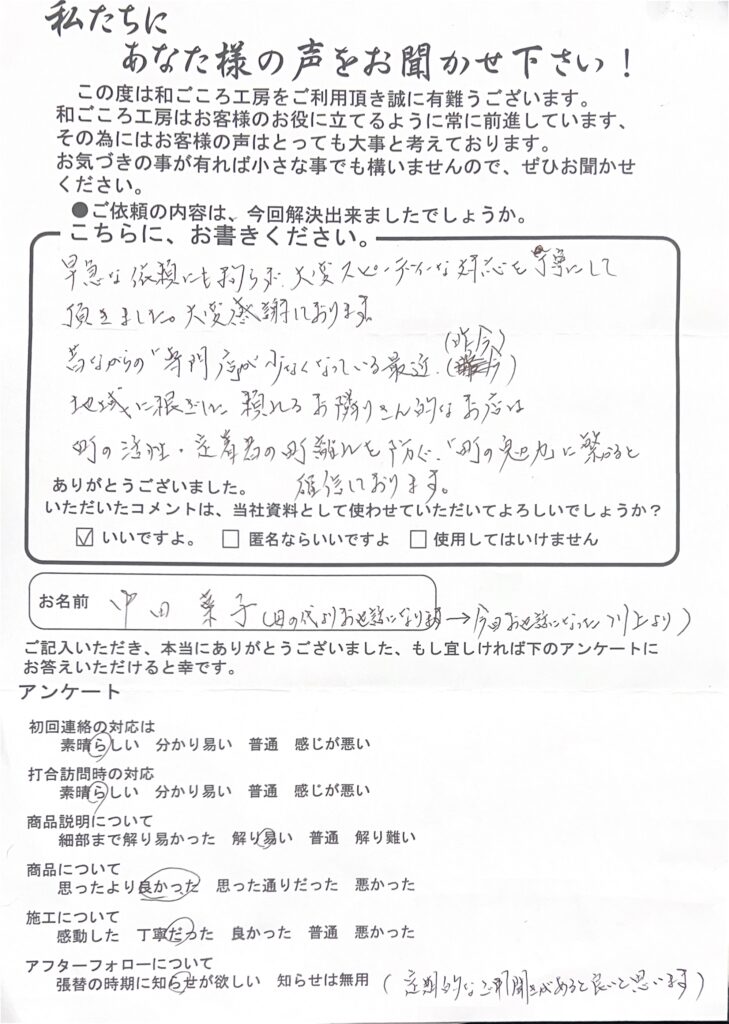 私たちに
あなた様の声をお聞かせ下さい！
この度は和ごころ工房をご利用頂き誠に有難うございます。
和ごころ工房はお客様のお役に立てるように常に前進しています、
その為にはお客様の声はとっても大事と考えております。
お気づきの事が有れば小さな事でも構いませんので、ぜひお聞かせ
ください。
●ご依頼の内容は、今回解決出来ましたでしょうか。
こちらに、お書きください。
早急な依頼にも拘らず、大変スピーディーな対応を丁寧にして
頂きました。大変感謝しております。
昔ながらの「専門店」が少なくなっている最近、(昨今)
地域に根ざした頼れるお隣りさん的なお店は
町の活性・定着者の町離れを防ぐ、「町の魅力」に繋ると
確信しております。
ありがとうございました。
いただいたコメントは、当社資料として使わせていただいてよろしいでしょうか？
☑ いいですよ。 □ 匿名ならいいですよ □ 使用してはいけません
お名前 中田 葉子 (母の代よりお世話になり → 今回お世話になった 川上より)
ご記入いただき、本当にありがとうございました、もし宜しければ下のアンケートに
お答えいただけると幸です。
アンケート
初回連絡の対応は
素晴らしい 分かり易い 普通 感じが悪い
打合訪問時の対応
素晴らしい 分かり易い 普通 感じが悪い
商品説明について
細部まで解り易かった 解り易い 普通 解り難い
商品について
思ったより良かった 思った通りだった 悪かった
施工について
感動した 丁寧だった 良かった 普通 悪かった
アフターフォローについて
張替の時期に知らせが欲しい 知らせは無用 (定期的なご用聞きがあると良いと思います)